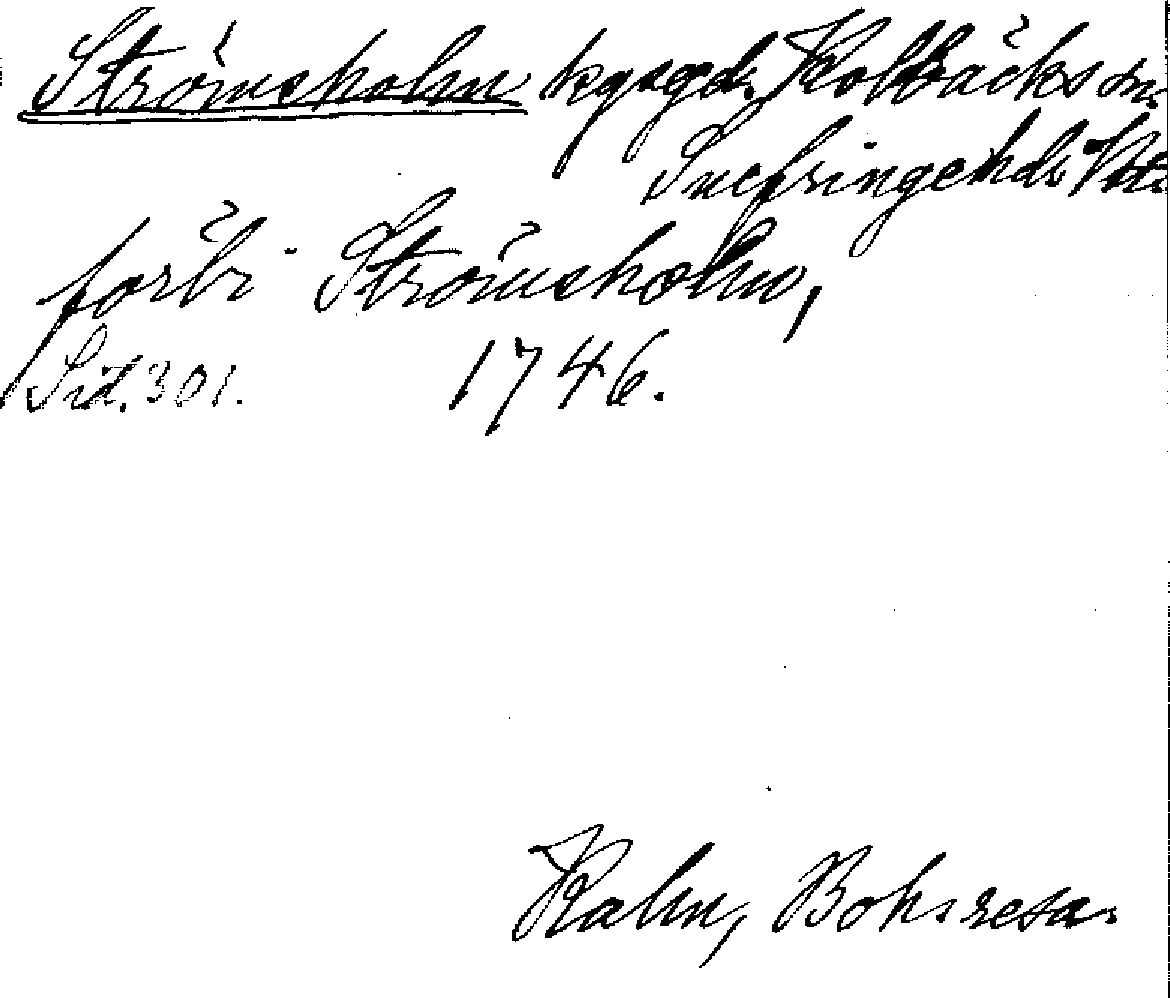 Strömsholm kgsgd. Kolbäcks sn.
Snefringe hd.
förbi Strömsholm,
Sid. 301. 1746.
Kalm, Boh. resa.